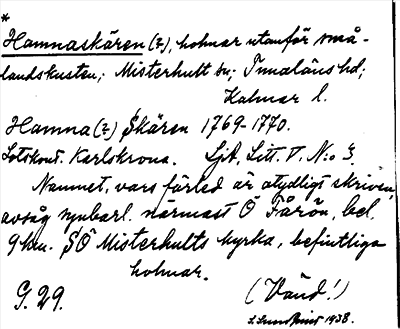 *
Hamnaskären (?), holmar utanför små-
landskusten; Misterhult sn; Tunaläns hd;
Kalmar l.
Hamna (?) Skären 1769-1770.
Lotskont. Karlskrona. SjA, Litt. V. N:o 3.
Namnet, vars förled är otydligt skriven,
avsåg uppenbarl. närmast Ö Fårön, bel.
9 km. SÖ Misterhults kyrka, befintliga
holmar.
G. 29. (Vänd!)
1938.